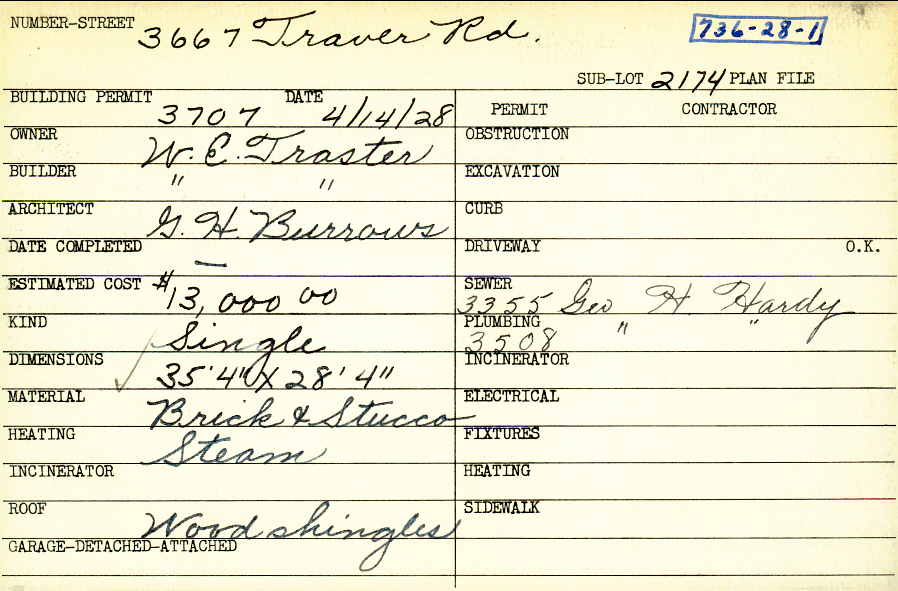 NUMBER-STREET 3667 Traver Rd. 736-28-1
SUB-LOT 2174 PLAN FILE
BUILDING PERMIT 3707 DATE 4/14/28 PERMIT CONTRACTOR
OWNER W. E. Traster OBSTRUCTION
BUILDER " " EXCAVATION
ARCHITECT G. H. Burrows CURB
DATE COMPLETED — DRIVEWAY O.K.
ESTIMATED COST $13,000 00 SEWER 3355 Geo H. Hardy
KIND Single PLUMBING 3508 " "
DIMENSIONS 35'4" X 28'4" INCINERATOR
MATERIAL Brick & Stucco ELECTRICAL
HEATING Steam FIXTURES
INCINERATOR HEATING
ROOF Wood shingles SIDEWALK
GARAGE-DETACHED-ATTACHED